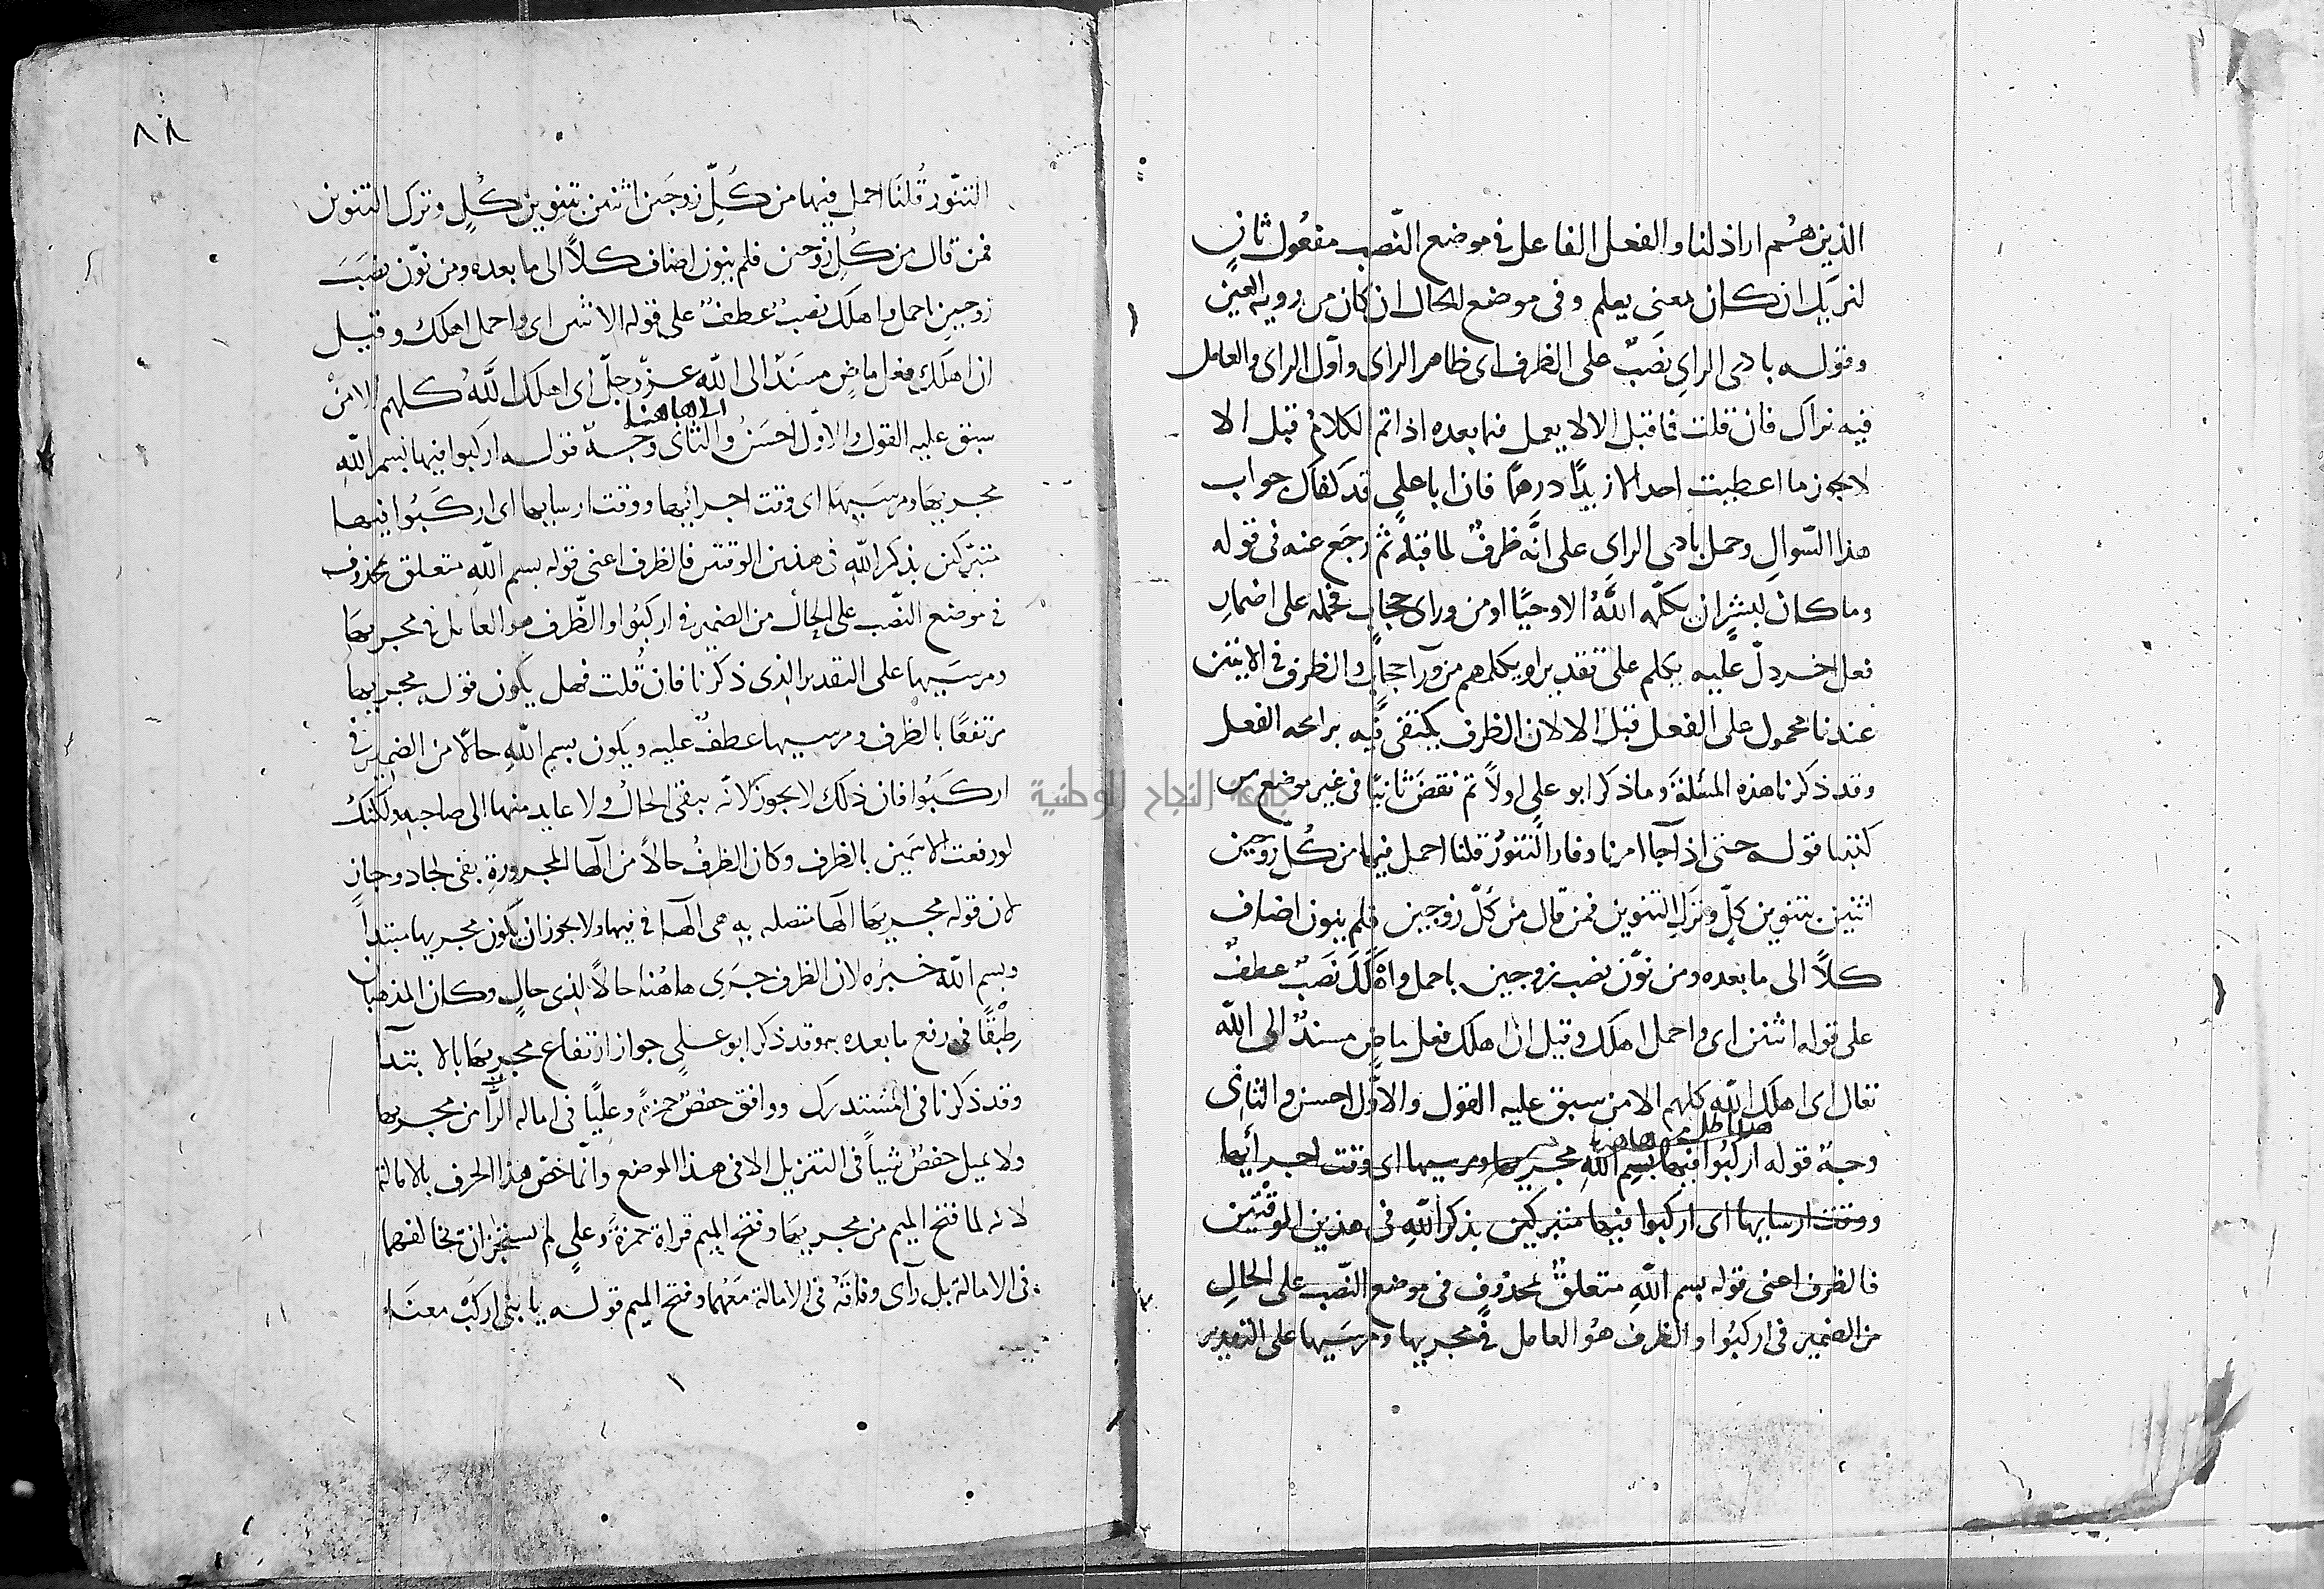 الذين هُم اراذلنا والفعل الفاعل فى موضع النّصب مفعُول ثانٍ
لنريك ان كان بمعنى يعلم وفى موضع الحال ان كان من روية العين
وقوله بادى الراىِ نَصَبٌ على الظرف اى ظاهر الراى واوّل الراى والعامل
فيه نراك فان قلت فما قبل الا لا يعمل فيما بعده اذا تم الكلامُ قبل الا
لا يجوز ما اعطيت احدا الا زيدًا درهمًا فان ابا علىٍ قد كفاك جواب
هذا السّوالِ وحمل بادى الراى على انَّه ظرفٌ لما قبله ثم رجَع عنه فى قوله
وما كان لبشرٍ ان يكلّمه اللَّهُ الا وحيًا او من وراى حجابٍ فحمله على اضمار
فعل اخر دلّ عليه يكلم على تقدير او يكلمهم من ورآ حجابٍ والظرف فى الايتين
عندنا محمول على الفعل قبل الا لان الظرف يكتفى فيه برائحه الفعل
وقد ذكرنا هذه المسئلةَ وما ذكر ابو علىٍ اولاً ثم نقضَ ثانيًا فى غير موضع من
كتبنا قوله حتى اذا جآ امرنا وفار التنورُ قلنا احمل فيها من كُلّ زوجين
اثنين بتنوين كلٍّ وتركِ التنوين فمن قال من كلّ زوجين فلم ينون اضاف
كلاً الى ما بعده ومن نوّن نصب زوجين باحمل واهلَكَ نَصَبٌ عطفٌ
على قوله اثنين اى واحمل اهلك وقيل ان اهلك فعل ماضٍ مسندٌ الى اللّه
تعالى اى اهلك اللّه كلهم الا من سبق عليه القول والاوّل احسن والثانى
هاهنا
وجهٌ قوله اركبُوا فيها بسم اللهِ مجريها ومرسيها اى وقت اجرائِها
ووقت ارسايها اى اركبوا فيها متبركين بذكر اللّهِ فى هذين الوقتين
فالظرف اعنى قوله بسم اللّهِ متعلقٌ بمحذوفٍ فى موضع النّصب على الحالِ
من الضمير فى اركبُوا والظرف هُو العامل فى مجريها ومرسَيها على التقدير
جامعة النجاح الوطنية
٨٨
التنّور قُلنَا احمل فيها من كُلِّ زوجَين اثنين بتنوين كُلٍ وترك التنوين
فمن قال من كُلِ زوجين فلم ينون اضاف كلاً الى ما بعده ومن نوّن نصَبَ
زوجين باحمل واهلك نصبٌ عطفٌ على قوله الاثنين اى واحمل اهلك وقيل
ان اهلَكَ فعل ماضٍ مسنَدٌ الى اللّه عزّ وجلّ اى اهلكَ اللَّهُ كلهم الا مَنْ
الى هاهنا
سبق عليه القول والاوّل احسَنُ والثانى وجهٌ قوله اركبوا فيها بسم اللّهِ
مجريها ومرسَيها اى وقت اجرائها ووقت ارسايها اى اركَبُوا فيها
متبرّكين بذكر اللّهِ فى هذين الوقتين فالظرف اعنى قوله بسم اللّهِ متعلق بمحذوف
فى موضع النّصب على الحال من الضمير فى اركبُوا والظّرف هو العامل فى مجريها
ومرسَيها على التقدير الذى ذكرنا فان قُلت فهل يكون قوله مجريها
مرتفعًا بالظرف ومرسيها عطفٌ عليه ويكون بسم اللّهِ حالًا من الضمير فى
اركَبُوا فان ذلك لا يجوز لانّه يبقى الحالُ ولا عايد منها الى صاحبهِ ولكنك
لو رفعت الاسمَين بالظرف وكان الظرفُ حالاً من الها المجرورةِ بقى لجاد وجازٍ
لان قوله مجريها الها متصله به هى الها فى فيها ولا يجوز ان يكون مجريها مبتدأً
وبسم اللّه خبرُه لان الظرف جرَى هاهُنا حالاً لذى حالٍ وكان المذهبان
طِبْقًا فى رفع ما بعده به وقد ذكر ابو علىٍ جواز ارتفاع مجريها بالابتدآ
وقد ذكرنا فى المُستدرك ووافق حفصٌ حمزةَ وعليًّا فى امالة الرَّا من مجريها
ولا يميل حفصٌ شياً فى التنزيل الا فى هذا الموضع وانّما خصّ هذا الحرف بالامالة
لانه لما فتح الميم من مجريها وفتح الميم قراة حمزةَ وعلىٍ لم يستجز ان يخالفهما
فى الامالة بل رآى وفاقَهُ فى الامالة مَعَهُما وفتح الميم قوله يا بنى اركَبْ معنَا